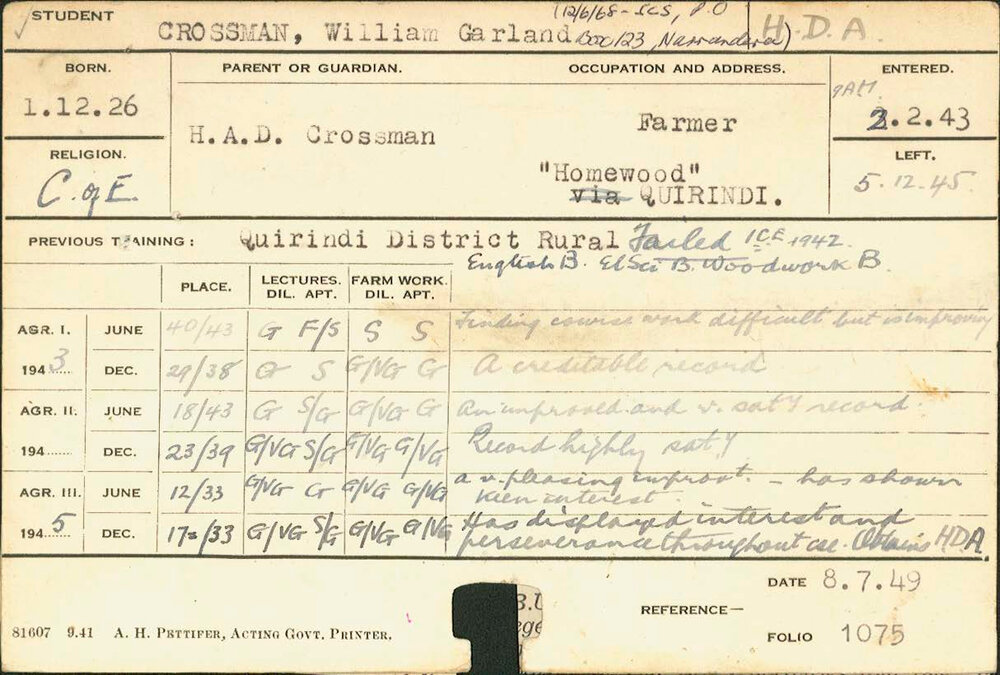 STUDENT
(12/6/68 - SCS, P.O
CROSSMAN, William Garland Box 123, Narrandera) H.D.A.
BORN. PARENT OR GUARDIAN. OCCUPATION AND ADDRESS. ENTERED.
9AM
1.12.26 H.A.D. Crossman Farmer 2.2.43
RELIGION. "Homewood" LEFT.
C. of E. via QUIRINDI. 5.12.45.
PREVIOUS TRAINING: Quirindi District Rural Failed ICE 1942.
English B. El Sci B. Woodwork B.
PLACE. LECTURES. DIL. APT. FARM WORK. DIL. APT.
AGR. I. JUNE 40/43 G F/S S S Finding course work difficult but is improving
1943 DEC. 29/38 G S G/VG G A creditable record
AGR. II. JUNE 18/43 G S/G G/VG G An improved and v. sat'y record.
194...... DEC. 23/39 G/VG S/G G/VG G/VG Record highly sat'y
AGR. III. JUNE 12/33 G/VG G G/VG G/VG a v. pleasing improvt. - has shown
keen interest.
1945 DEC. 17=/33 G/VG S/G G/VG G/VG Has displayed interest and
perseverance throughout cse. Obtains HDA.
DATE 8.7.49
REFERENCE—
FOLIO 1075
81607 9.41 A. H. PETTIFER, ACTING GOVT. PRINTER.